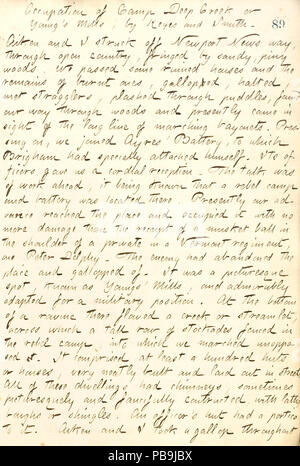 Occupation of Camp Deep Creek or
Young's Mills, by Keyes and Smith.
89
Aston and I struck off Newport News way,
through open country, fringed by sandy, piny
woods. We passed some ruined houses and the
remains of burnt ones, galloped, halted,
met stragglers, plashed through puddles, found
our way through woods and presently came in
sight of the long line of marching bayonets. Prea
sing on, we joined Ayres' Battery, to which
Brigham had specially attached himself. Its of
ficers gave us a cordial reception. The talk was
of work ahead, it being known that a rebel camp
and battery was located there. Presently our ad
vance reached the place and occupied it with no
more damage than the receipt of a musket ball in
the shoulder of a private in a Vermont regiment,
one Peter Delphy. The enemy had abandoned the
place and galloped off. It was a picturesque
spot, known as Youngs' Mills, and admirably
adapted for a military position. At the bottom
of a ravine there flowed a creek or streamlet,
across which a tall row of stockades fenced in
the rebel camp, into which we marched unoppo
sed. It comprised at least a hundred huts
or houses, very neatly built and laid out in streets.
All of these dwellings had chimneys, sometimes
picturesquely and fancifully contructed with laths,
or shingles. An officer's hut had a portico
to it. and I took a gallop throughout
alamy
Image ID: PB9JBX
www.alamy.com